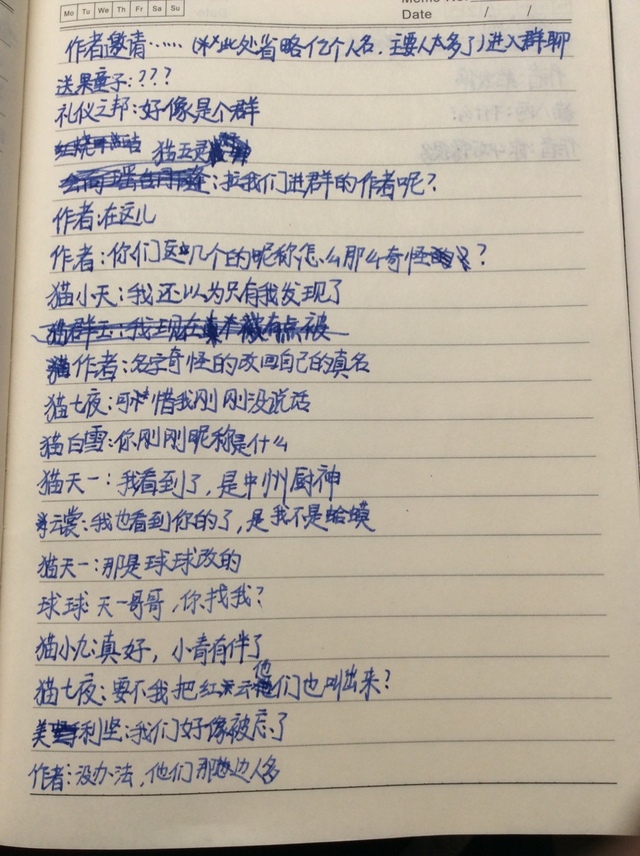 Mo Tu We Th Fr Sa Su
Memo No.
Date / /
作者邀请……（※此处省略亿个人名，主要人太多了）进入群聊
送果童子：？？？
礼仪之邦：好像是个群
猫五灵
：拉我们进群的作者呢？
作者：在这儿
作者：你们这几个的昵称怎么那么奇怪？
猫小天：我还以为只有我发现了
作者：名字奇怪的改回自己的真名
猫七夜：可惜我刚刚没说话
猫白雪：你刚刚昵称是什么
猫天一：我看到了，是中州厨神
云裳：我也看到你的了，是我不是蛤蟆
猫天一：那是球球改的
球球：天一哥哥，你找我？
猫小九：真好，小青有伴了
猫七夜：要不我把红云他们也叫出来？
美利坚：我们好像被忘了
作者：没办法，他们那边人多